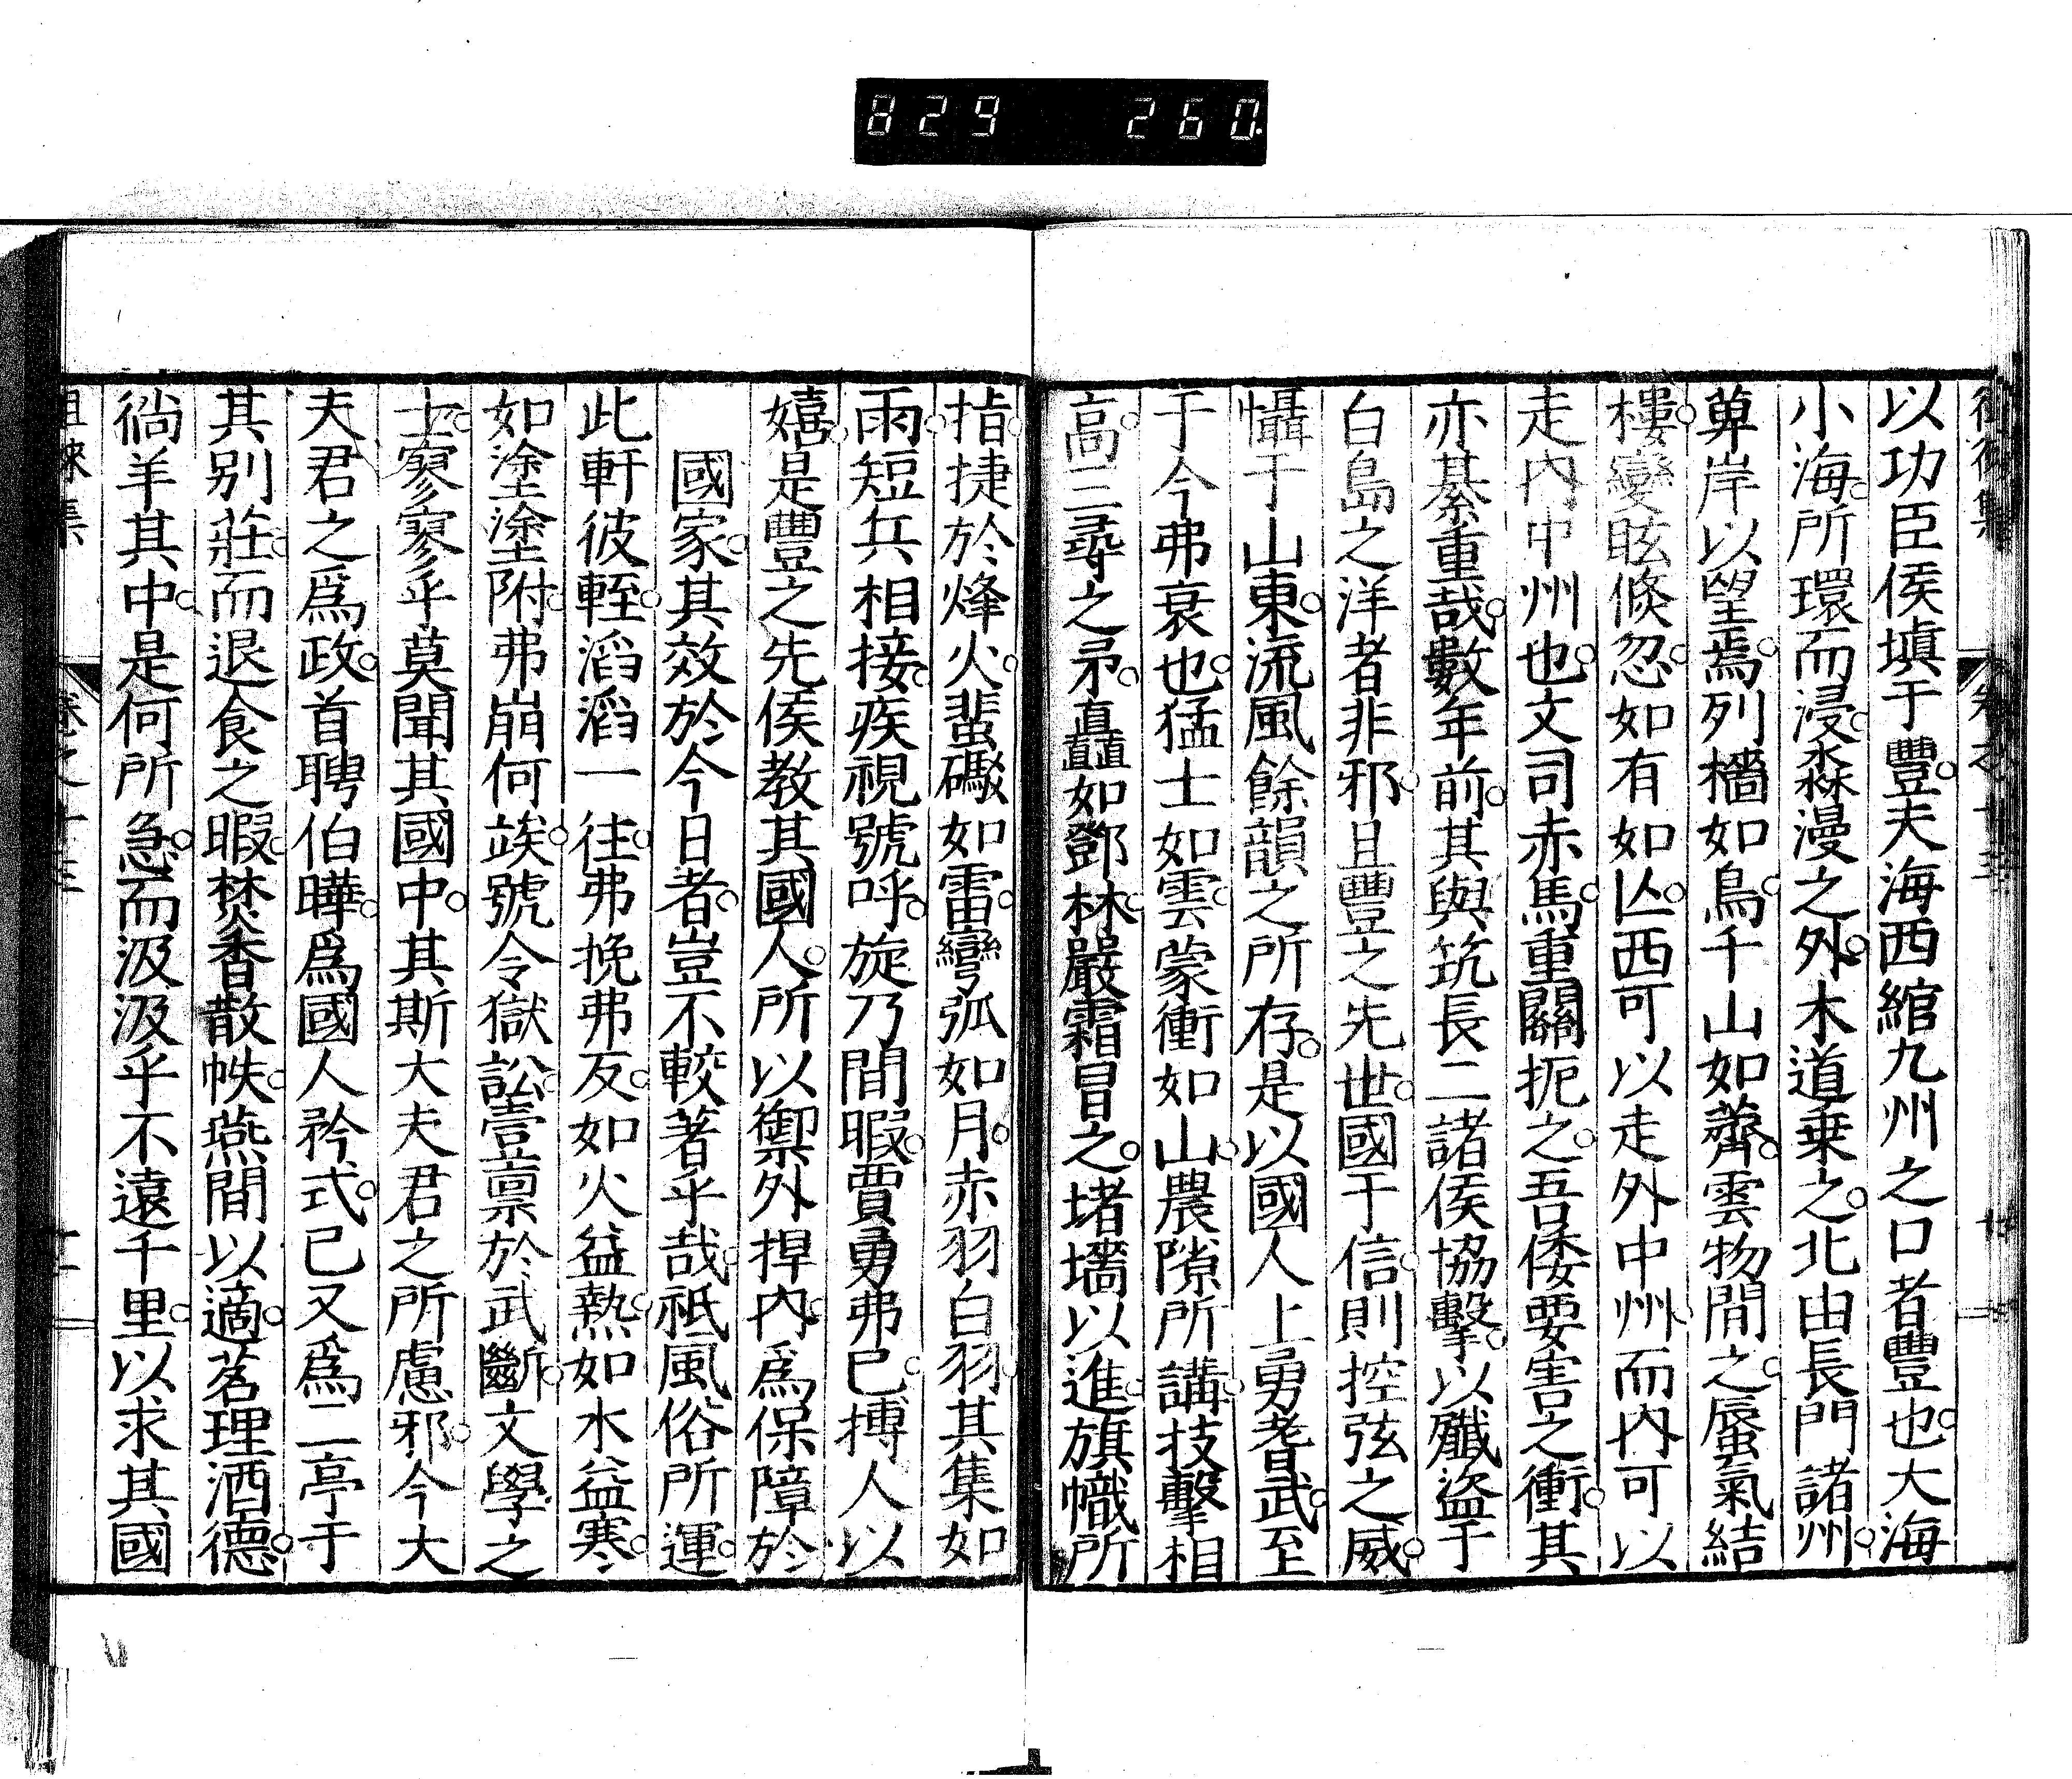 829 260.
以功臣侯塡于豐夫海西綰九州之口者豐也大海
小海所環而浸淼漫之外木道乗之北由長門諸州
萆岸以望焉列檣如鳥千山如薺雲物間之蜃氣結
樓變眩倐忽如有如亾西可以走外中州而內可以
走內中州也文司赤馬重關扼之吾倭要害之衝其
亦綦重哉數年前其與筑長二諸侯協擊以殲盜于
白島之洋者非邪且豐之先世國于信則控弦之威
懾于山東流風餘韻之所存是以國人上勇耆武至
于今弗衰也猛士如雲蒙衝如山農隙所講技擊相
高三尋之矛矗如鄧林嚴霜冒之堵墻以進旗幟所
指捷於烽火蜚礮如雷彎弧如月赤羽白羽其集如
雨短兵相接疾視號呼旋乃間暇賈勇弗已搏人以
嬉是豐之先侯教其國人所以禦外捍內爲保障於
國家其效於今日者豈不較著乎哉祗風俗所運
此軒彼輊滔滔一往弗挽弗反如火益熱如水益寒
如塗塗附弗崩何竢號令獄訟壹禀於武斷文學之
士寥寥乎莫聞其國中其斯大夫君之所慮邪今大
夫君之爲政首聘伯曄爲國人矜式已又爲二亭于
其別莊而退食之暇焚香散帙燕間以適茗理酒德
徜羊其中是何所急而汲汲乎不遠千里以求其國
徂徠集
卷之十三
十二